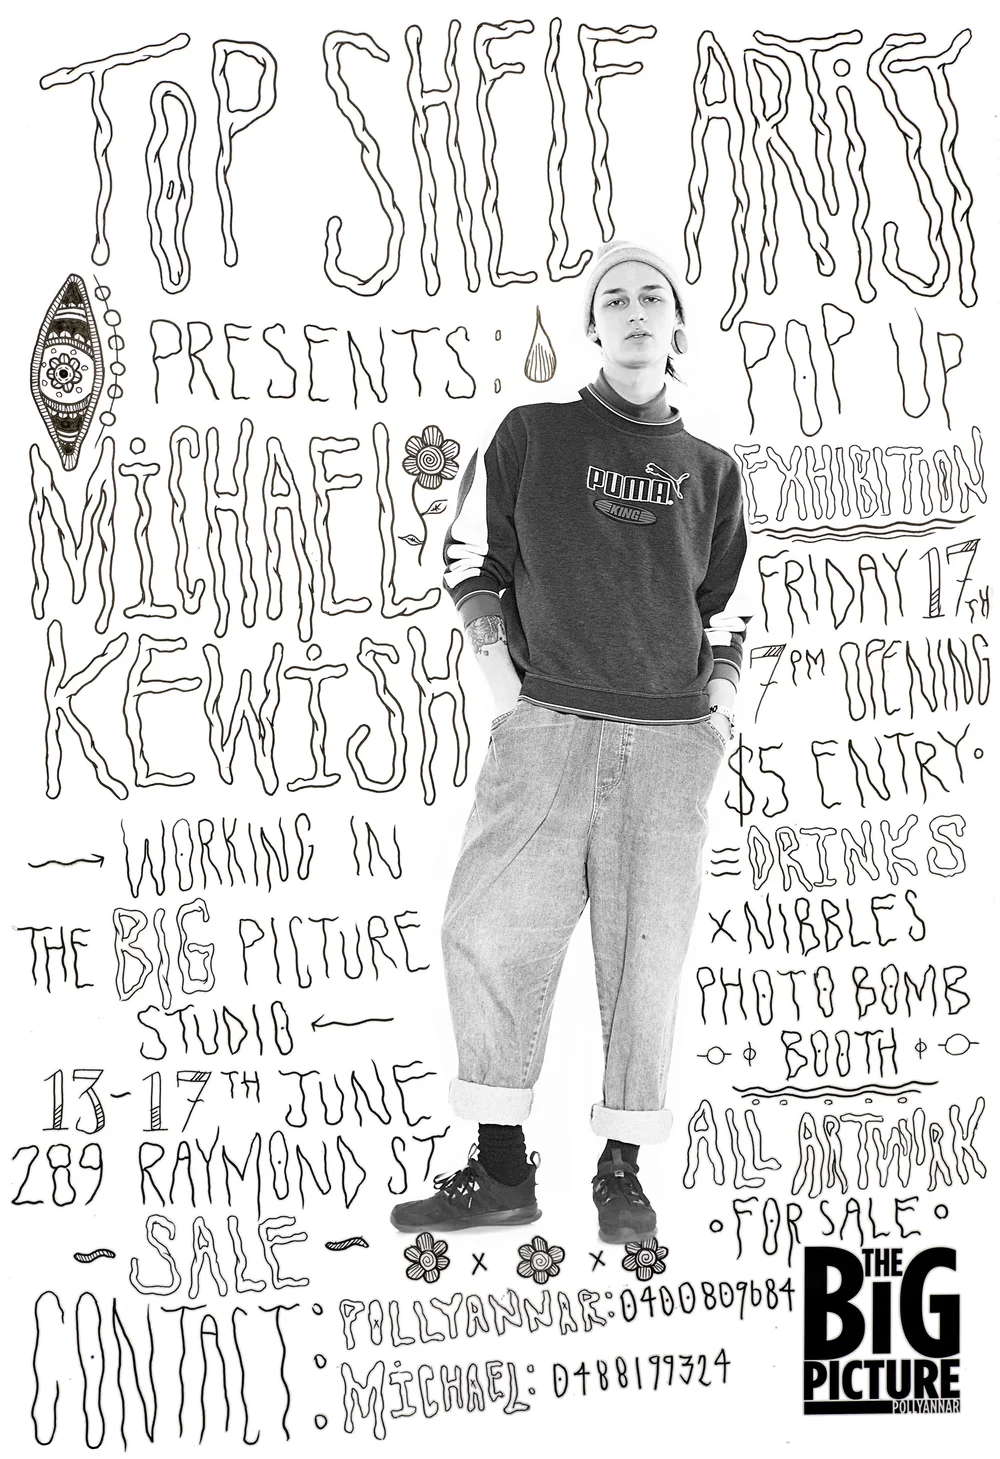 TOP SHELF ARTIST
PRESENTS:
MiCHAEL
KEWiSH
WORKING IN
THE BIG PICTURE
STUDIO
13-17TH JUNE
289 RAYMOND ST
SALE
POP UP
EXHIBITION
FRIDAY 17TH
7PM OPENING
$5 ENTRY
DRINKS
X NIBBLES
PHOTO BOMB
BOOTH
ALL ARTWORK
FOR SALE
PUMA
KING
CONTACT:
POLLYANNAR: 0400809684
MiCHAEL: 0488199324
THE
BiG
PICTURE
POLLYANNAR